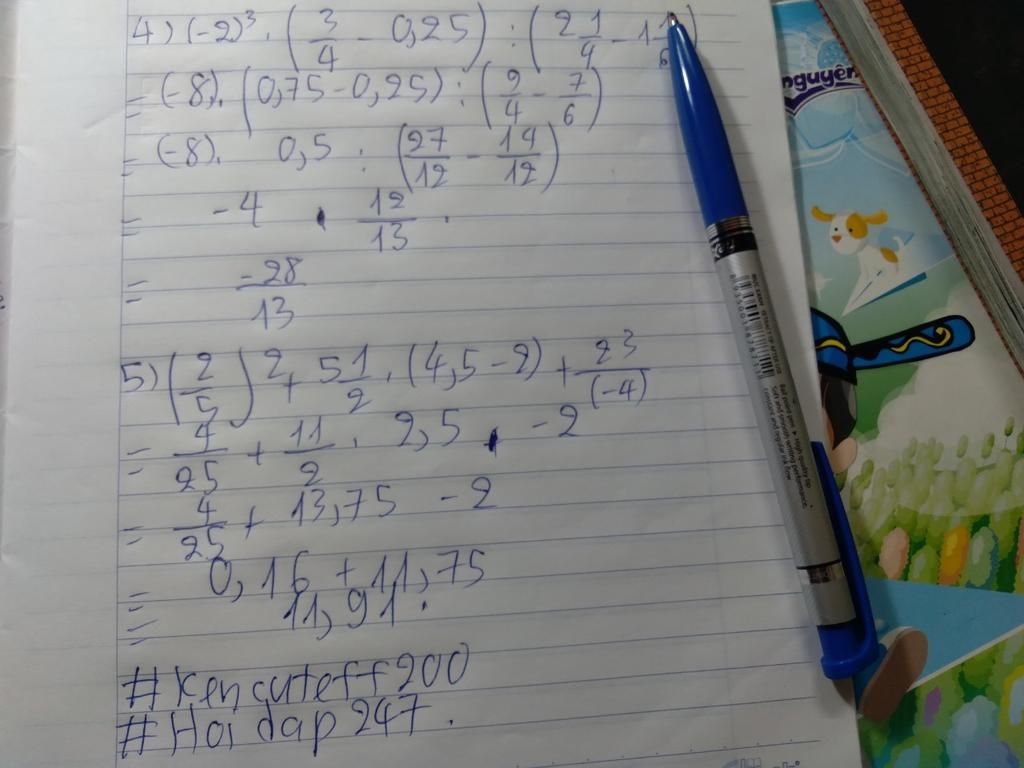 4) (-2)³ . (3/4 - 0,25) : (2 1/4 - 1 1/6)
= (-8). (0,75-0,25) : (9/4 - 7/6)
= (-8). 0,5 : (27/12 - 14/12)
= -4 . 12/13 .
= -28/13
5) (2/5)² + 5 1/2 . (4,5-2) + 2³/(-4)
= 4/25 + 11/2 . 2,5 . -2
= 4/25 + 13,75 - 2
= 0,16 + 11,75
= 11,91.
#Kencuteff200
#Hoi dap 247.
nguyên